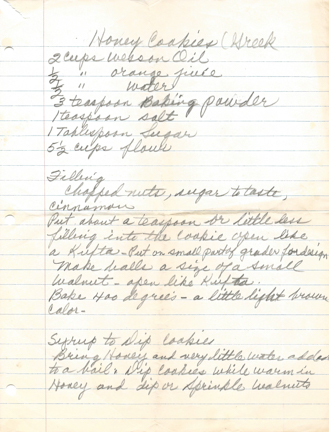 Honey Cookies (Greek
2 cups Wesson Oil
1/2 " orange juice
1/2 " water
3 teaspoon Baking powder
1 teaspoon salt
1 Tablespoon Sugar
5 1/2 cups flour
Filling
Chopped nuts, sugar to taste,
cinnamon
Put about a teaspoon or little less
filling into the cookie open like
a Kufta - Put on small part of grader for design
Make balls a size of a small
walnut - open like Kufta
Bake 400 degree's - a little light brown
color -
Syrup to Dip Cookies
Bring Honey and very little water added
to a boil. Dip Cookies while warm in
Honey and dip or sprinkle walnuts